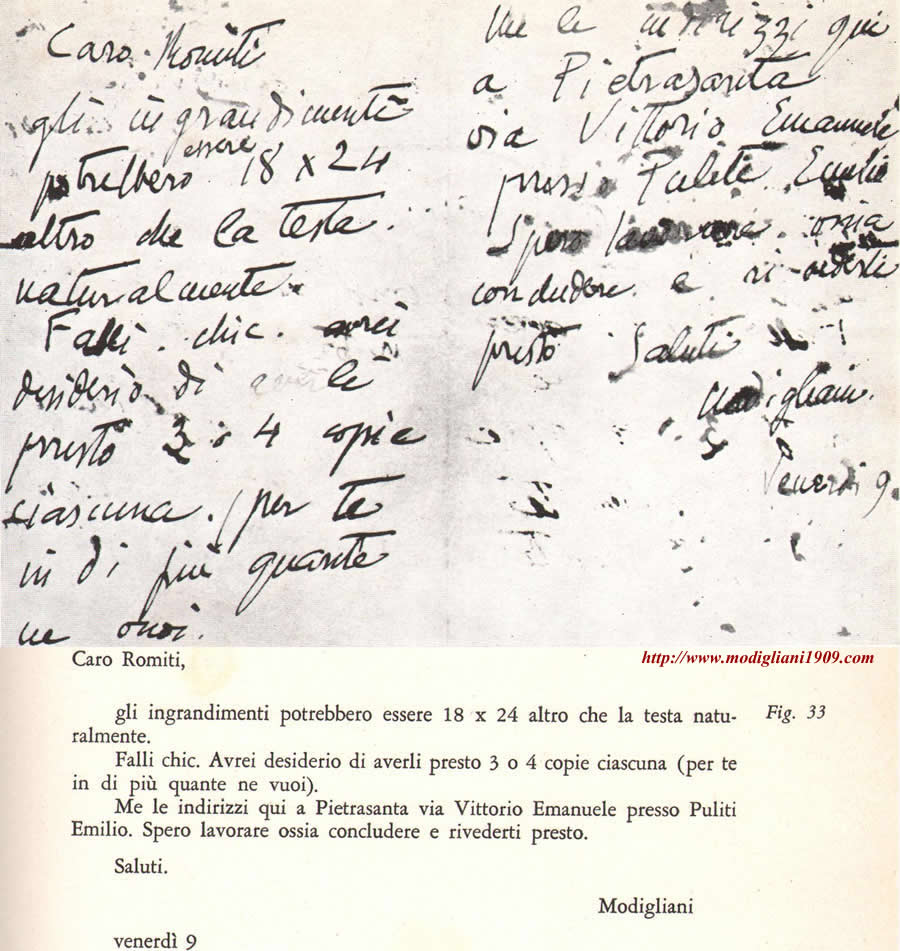 Caro Romiti
gli ingrandimenti
potrebbero essere 18 x 24
altro che la testa
naturalmente.
Falli chic. avrei
desiderio di averle
presto 3 o 4 copie
ciascuna. (per te
in di più quante
ne vuoi.
Me le indirizzi qui
a Pietrasanta
via Vittorio Emanuele
presso Puliti Emilio
Spero lavorare ossia
concludere e rivederti
presto Saluti
Modigliani.
Venerdi 9.
Caro Romiti,
http://www.modigliani1909.com
gli ingrandimenti potrebbero essere 18 x 24 altro che la testa natu-
Fig. 33
ralmente.
Falli chic. Avrei desiderio di averli presto 3 o 4 copie ciascuna (per te
in di più quante ne vuoi).
Me le indirizzi qui a Pietrasanta via Vittorio Emanuele presso Puliti
Emilio. Spero lavorare ossia concludere e rivederti presto.
Saluti.
Modigliani
venerdì 9